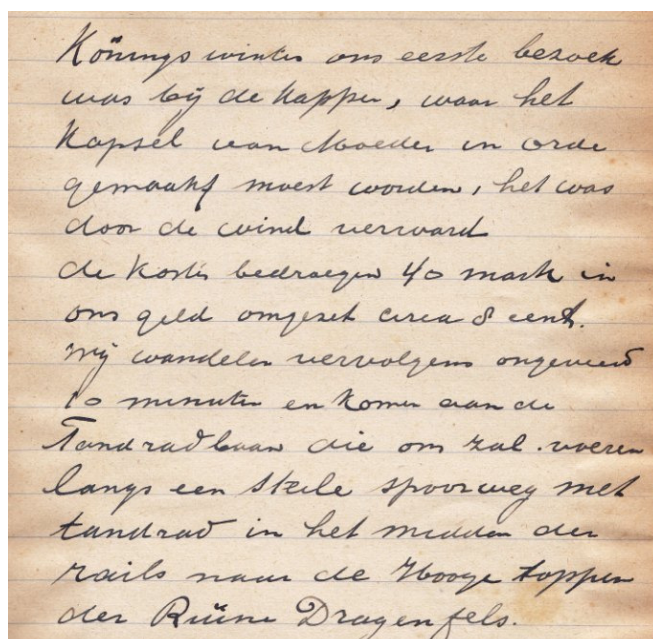 Königswinter ons eerste bezoek
was bij de Kapper, waar het
Kapsel van Moeder in orde
gemaakt moest worden, het was
door de wind verward
de Kosten bedroegen 40 mark in
ons geld omgezet circa 8 cent.
Wij wandelen vervolgens ongeveer
10 minuten en Komen aan de
Tandradbaan die ons zal voeren
langs een steile spoorweg met
tandrad in het midden der
rails naar de Hooge toppen
der Ruïne Dragenfels.